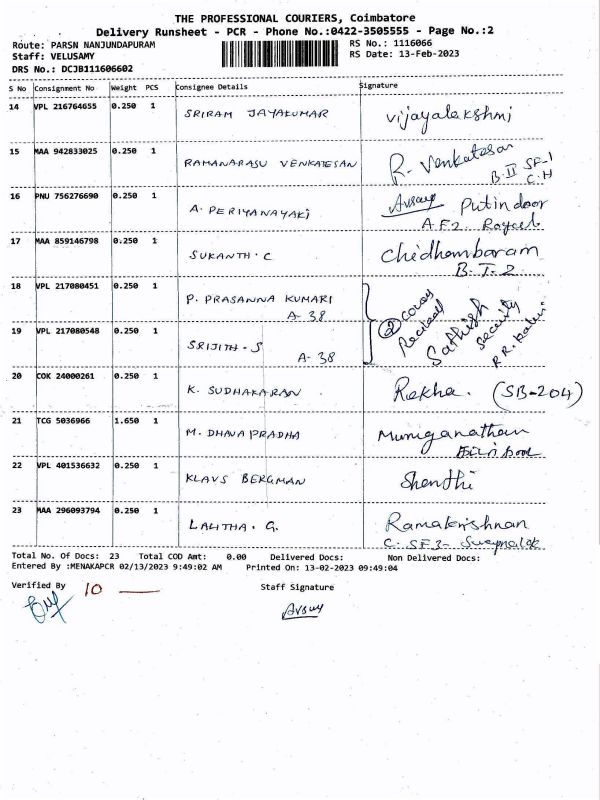 THE PROFESSIONAL COURIERS, Coimbatore
Delivery Runsheet - PCR - Phone No.:0422-3505555 - Page No.:2
Route: PARSN NANJUNDAPURAM RS No.: 1116066
Staff: VELUSAMY RS Date: 13-Feb-2023
DRS No.: DCJB111606602
S No Consignment No Weight PCS Consignee Details Signature
14 VPL 216764655 0.250 1 SRIRAM JAYAKUMAR Vijayalakshmi
15 MAA 942833025 0.250 1 RAMANARASU VENKATESAN R. Venkatesan
B.II SF-1
C.H
16 PNU 756276690 0.250 1 A. PERIYANAYAKI Putin door
A F2
17 MAA 859146798 0.250 1 SUKANTH. C Chidhambaram
B.T-2
18 VPL 217080451 0.250 1 P. PRASANNA KUMARI
A-38
② 
Sathish
Security
19 VPL 217080548 0.250 1 SRIJITH-S
A-38
20 COK 24000261 0.250 1 K. SUDHAKARAN Rekha. (SB-204)
21 TCG 5036966 1.650 1 M. DHAVAPRADHA Muruganathan
22 VPL 401536632 0.250 1 KLAVS BERGMAN Shanthi
23 MAA 296093794 0.250 1 LALITHA. G. Ramakrishnan
C. SF3-
Total No. Of Docs: 23 Total COD Amt: 0.00 Delivered Docs: Non Delivered Docs:
Entered By :MENAKAPCR 02/13/2023 9:49:02 AM Printed On: 13-02-2023 09:49:04
Verified By 10 — Staff Signature